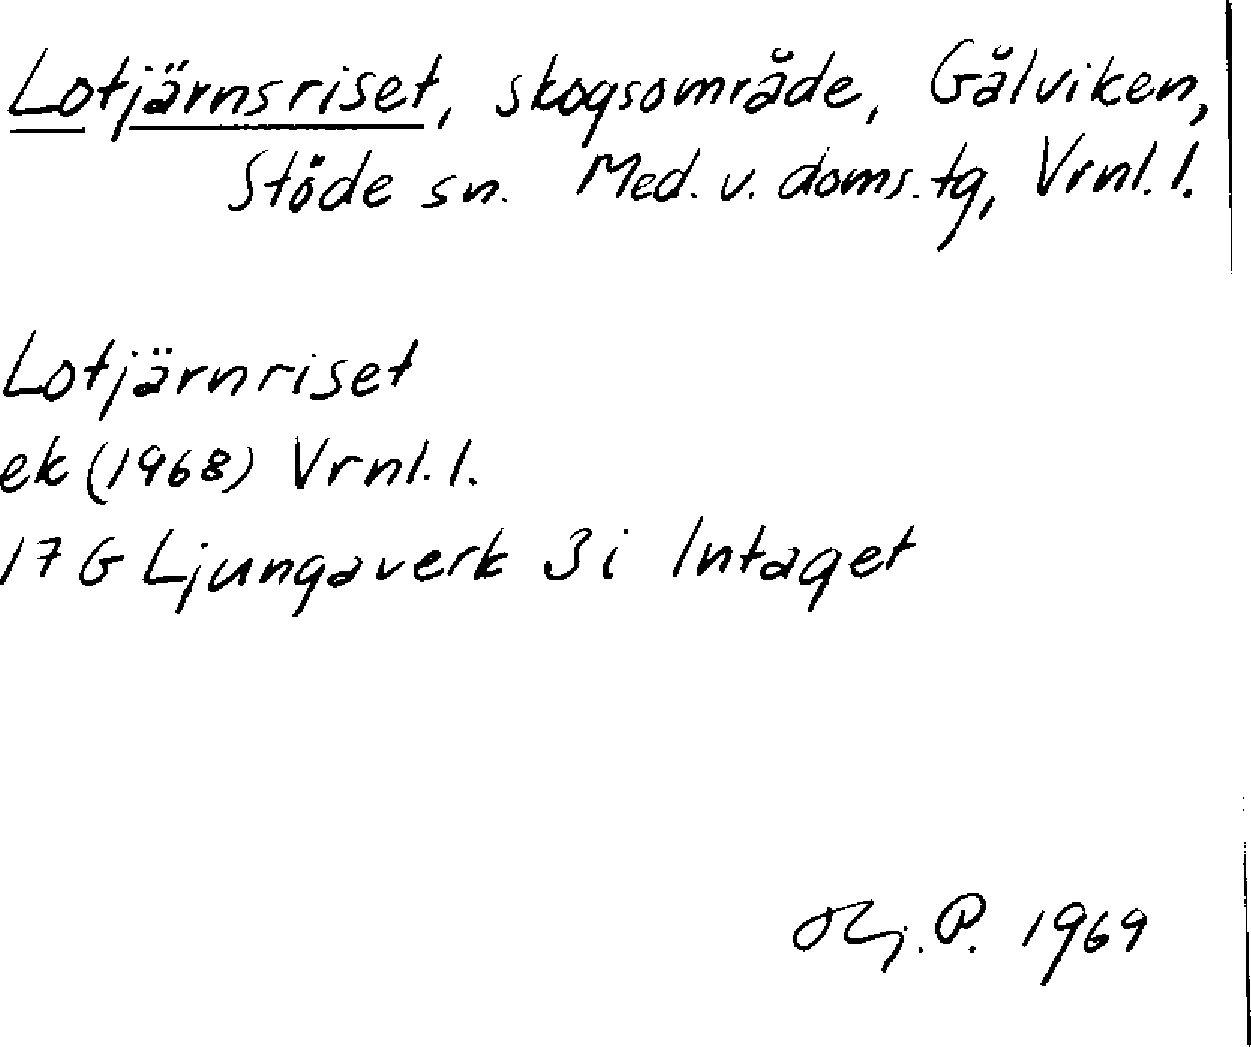 Lotjärnsriset, skogsområde, Gålviken,
Stöde sn. Med. v. doms. tg, Vrnl. l.
Lotjärnriset
ek (1968) Vrnl. l.
17 G Ljungaverk 3 i Intaget
P. 1969